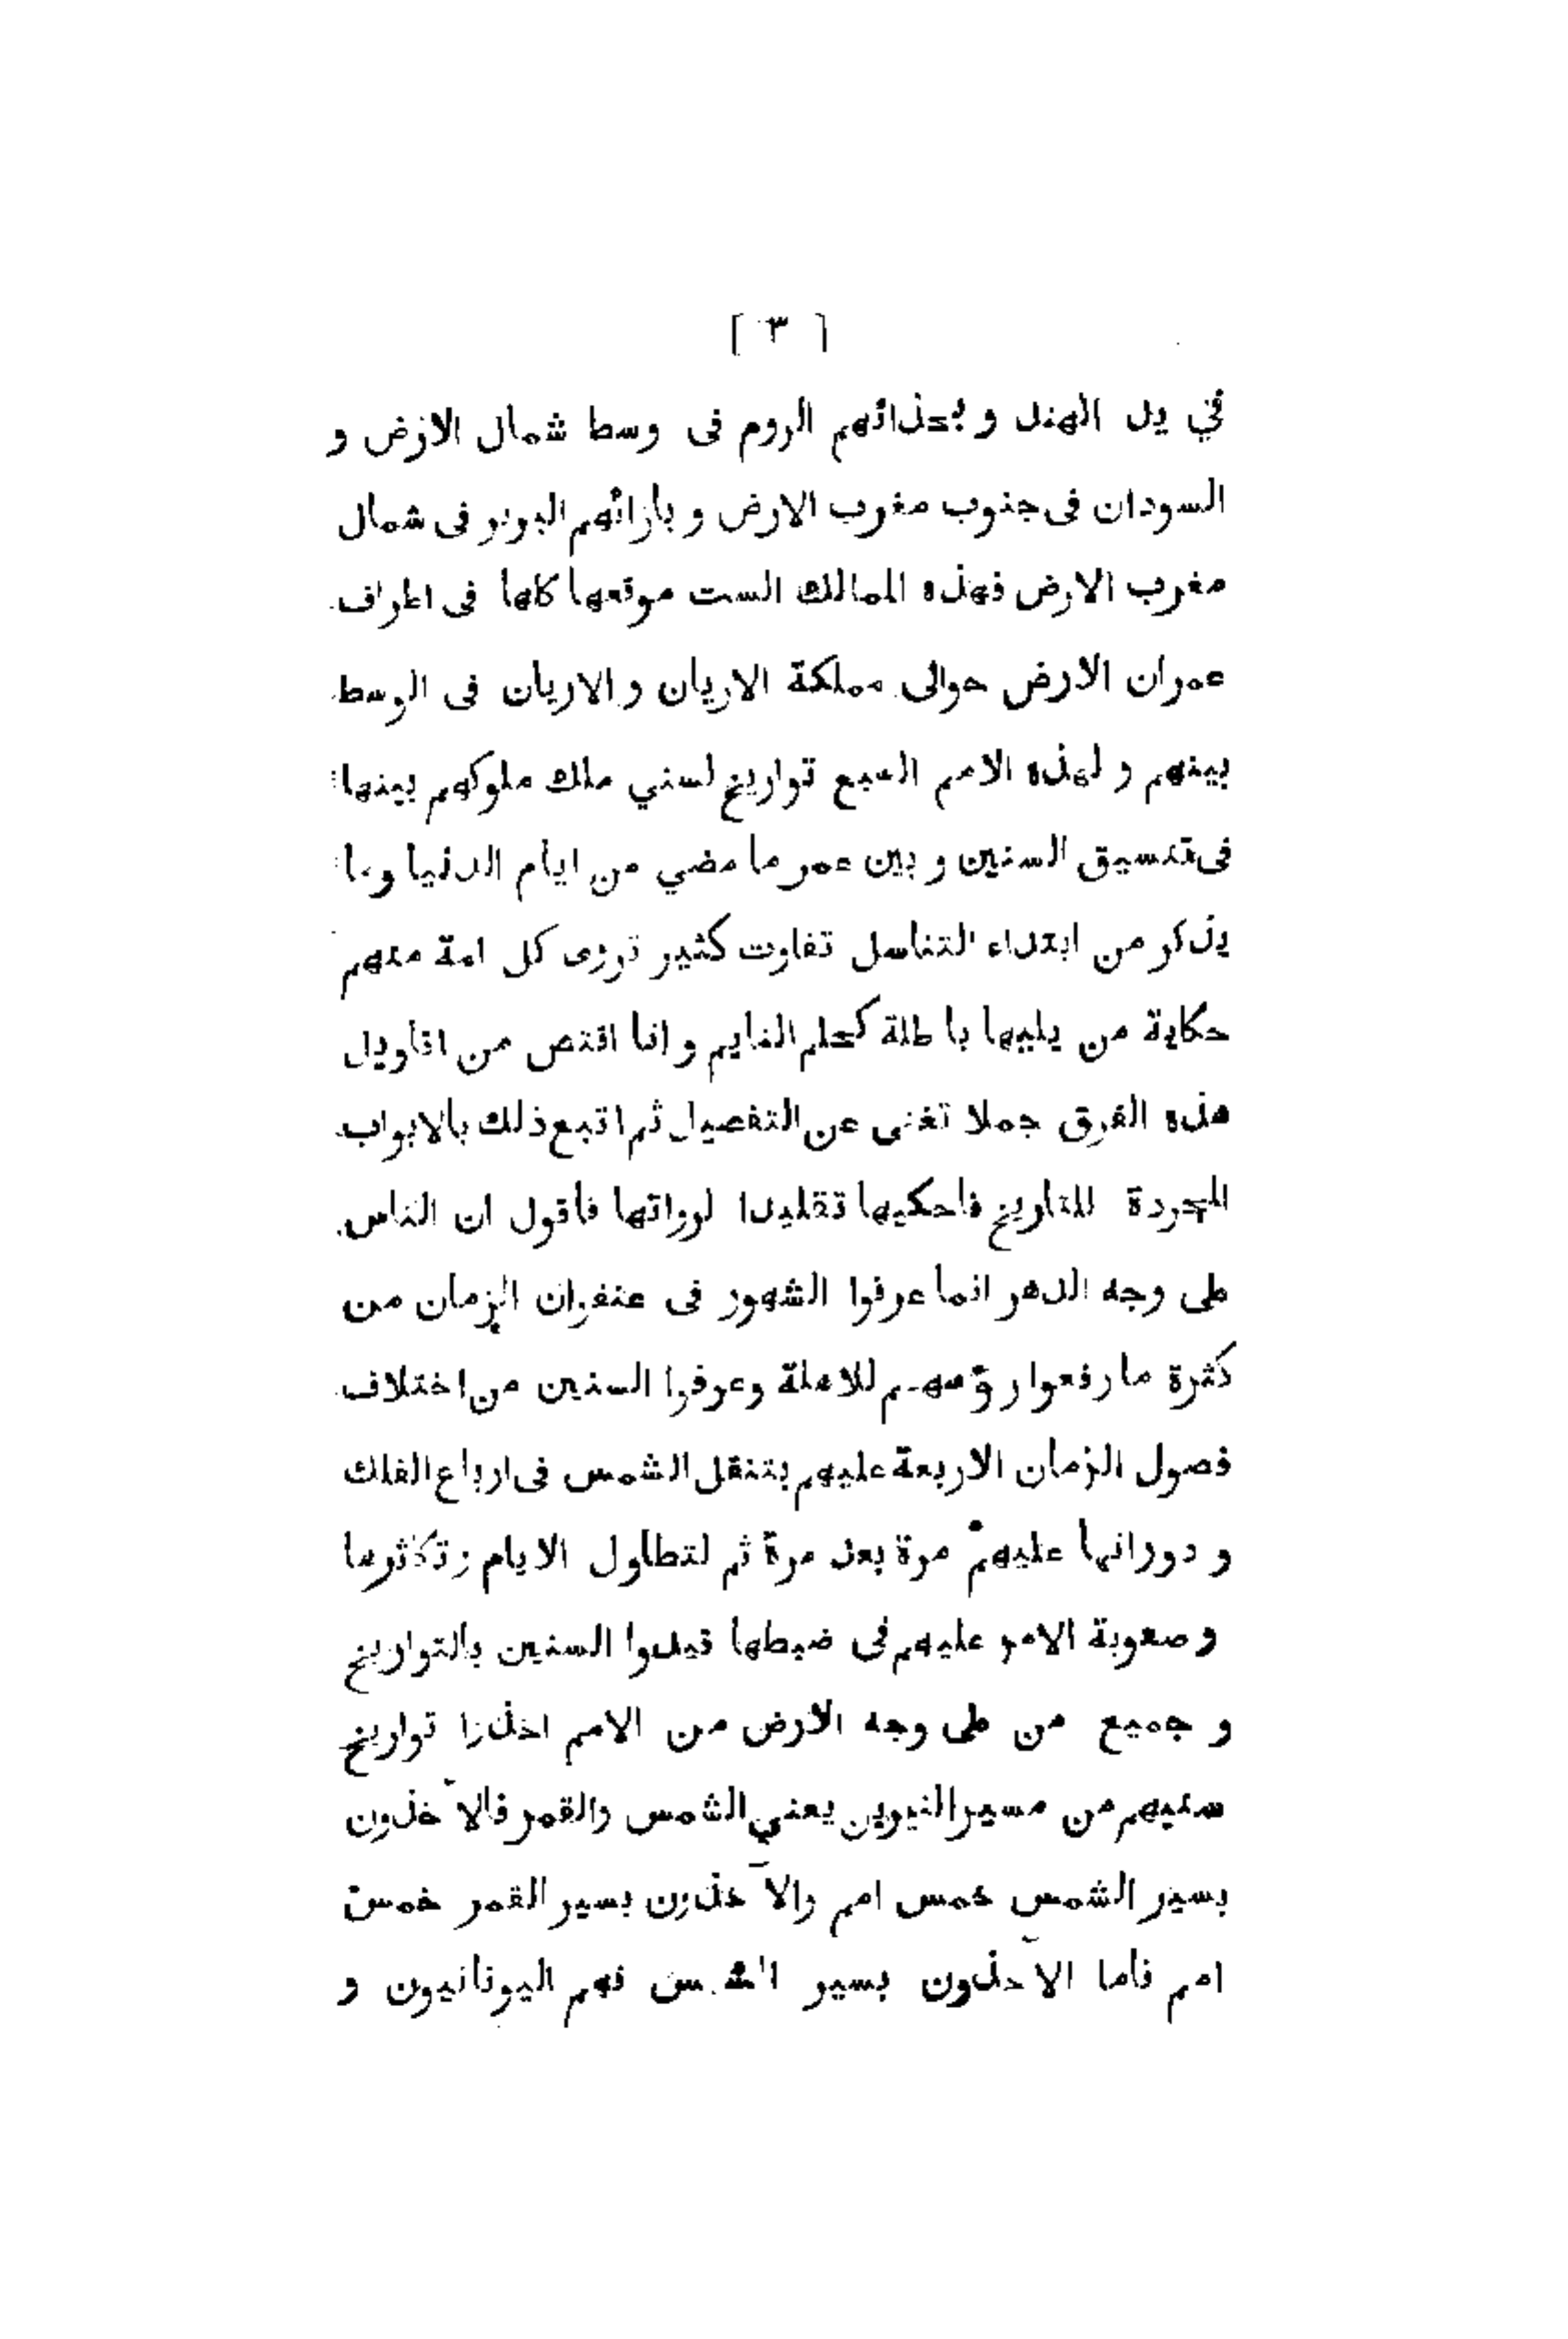 [ ٣ ]
في يد الهند و بحذائهم الروم فى وسط شمال الارض و
السودان فى جنوب مغرب الارض و بازائهم البربر فى شمال
مغرب الارض فهذه الممالك الست موقعها كلها فى اطراف
عمران الارض حوالى مملكة الاريان و الاريان فى الوسط
بينهم و لهذه الامم السبع تواريخ لسني ملك ملوكهم بينها
فى تنسيق السنين و بين عمر ما مضي من ايام الدنيا وما
يذكر من ابتداء التناسل تفاوت كثير ترى كل امة منهم
حكاية من يليها باطلة كحلم النايم و انا اقتص من اقاويل
هذه الفرق جملا تغنى عن التفصيل ثم اتبع ذلك بالابواب
المجردة للتاريخ فاحكيها تقليدا لرواتها فاقول ان الناس
على وجه الدهر انما عرفوا الشهور فى عنفوان الزمان من
كثرة ما رفعوا رؤسهم للاهلة وعرفوا السنين من اختلاف
فصول الزمان الاربعة عليهم بتنقل الشمس فى ارباع الفلك
و دورانها عليهم مرة بعد مرة ثم لتطاول الايام و تكاثرها
و صعوبة الامر عليهم فى ضبطها قيدوا السنين بالتواريخ
و جميع من على وجه الارض من الامم اخذوا تواريخ
سنيهم من مسير النيرين يعني الشمس والقمر فالآخذون
بسير الشمس خمس امم والآخذون بسير القمر خمس
امم فاما الآخذون بسير الشمس فهم اليونانيون و